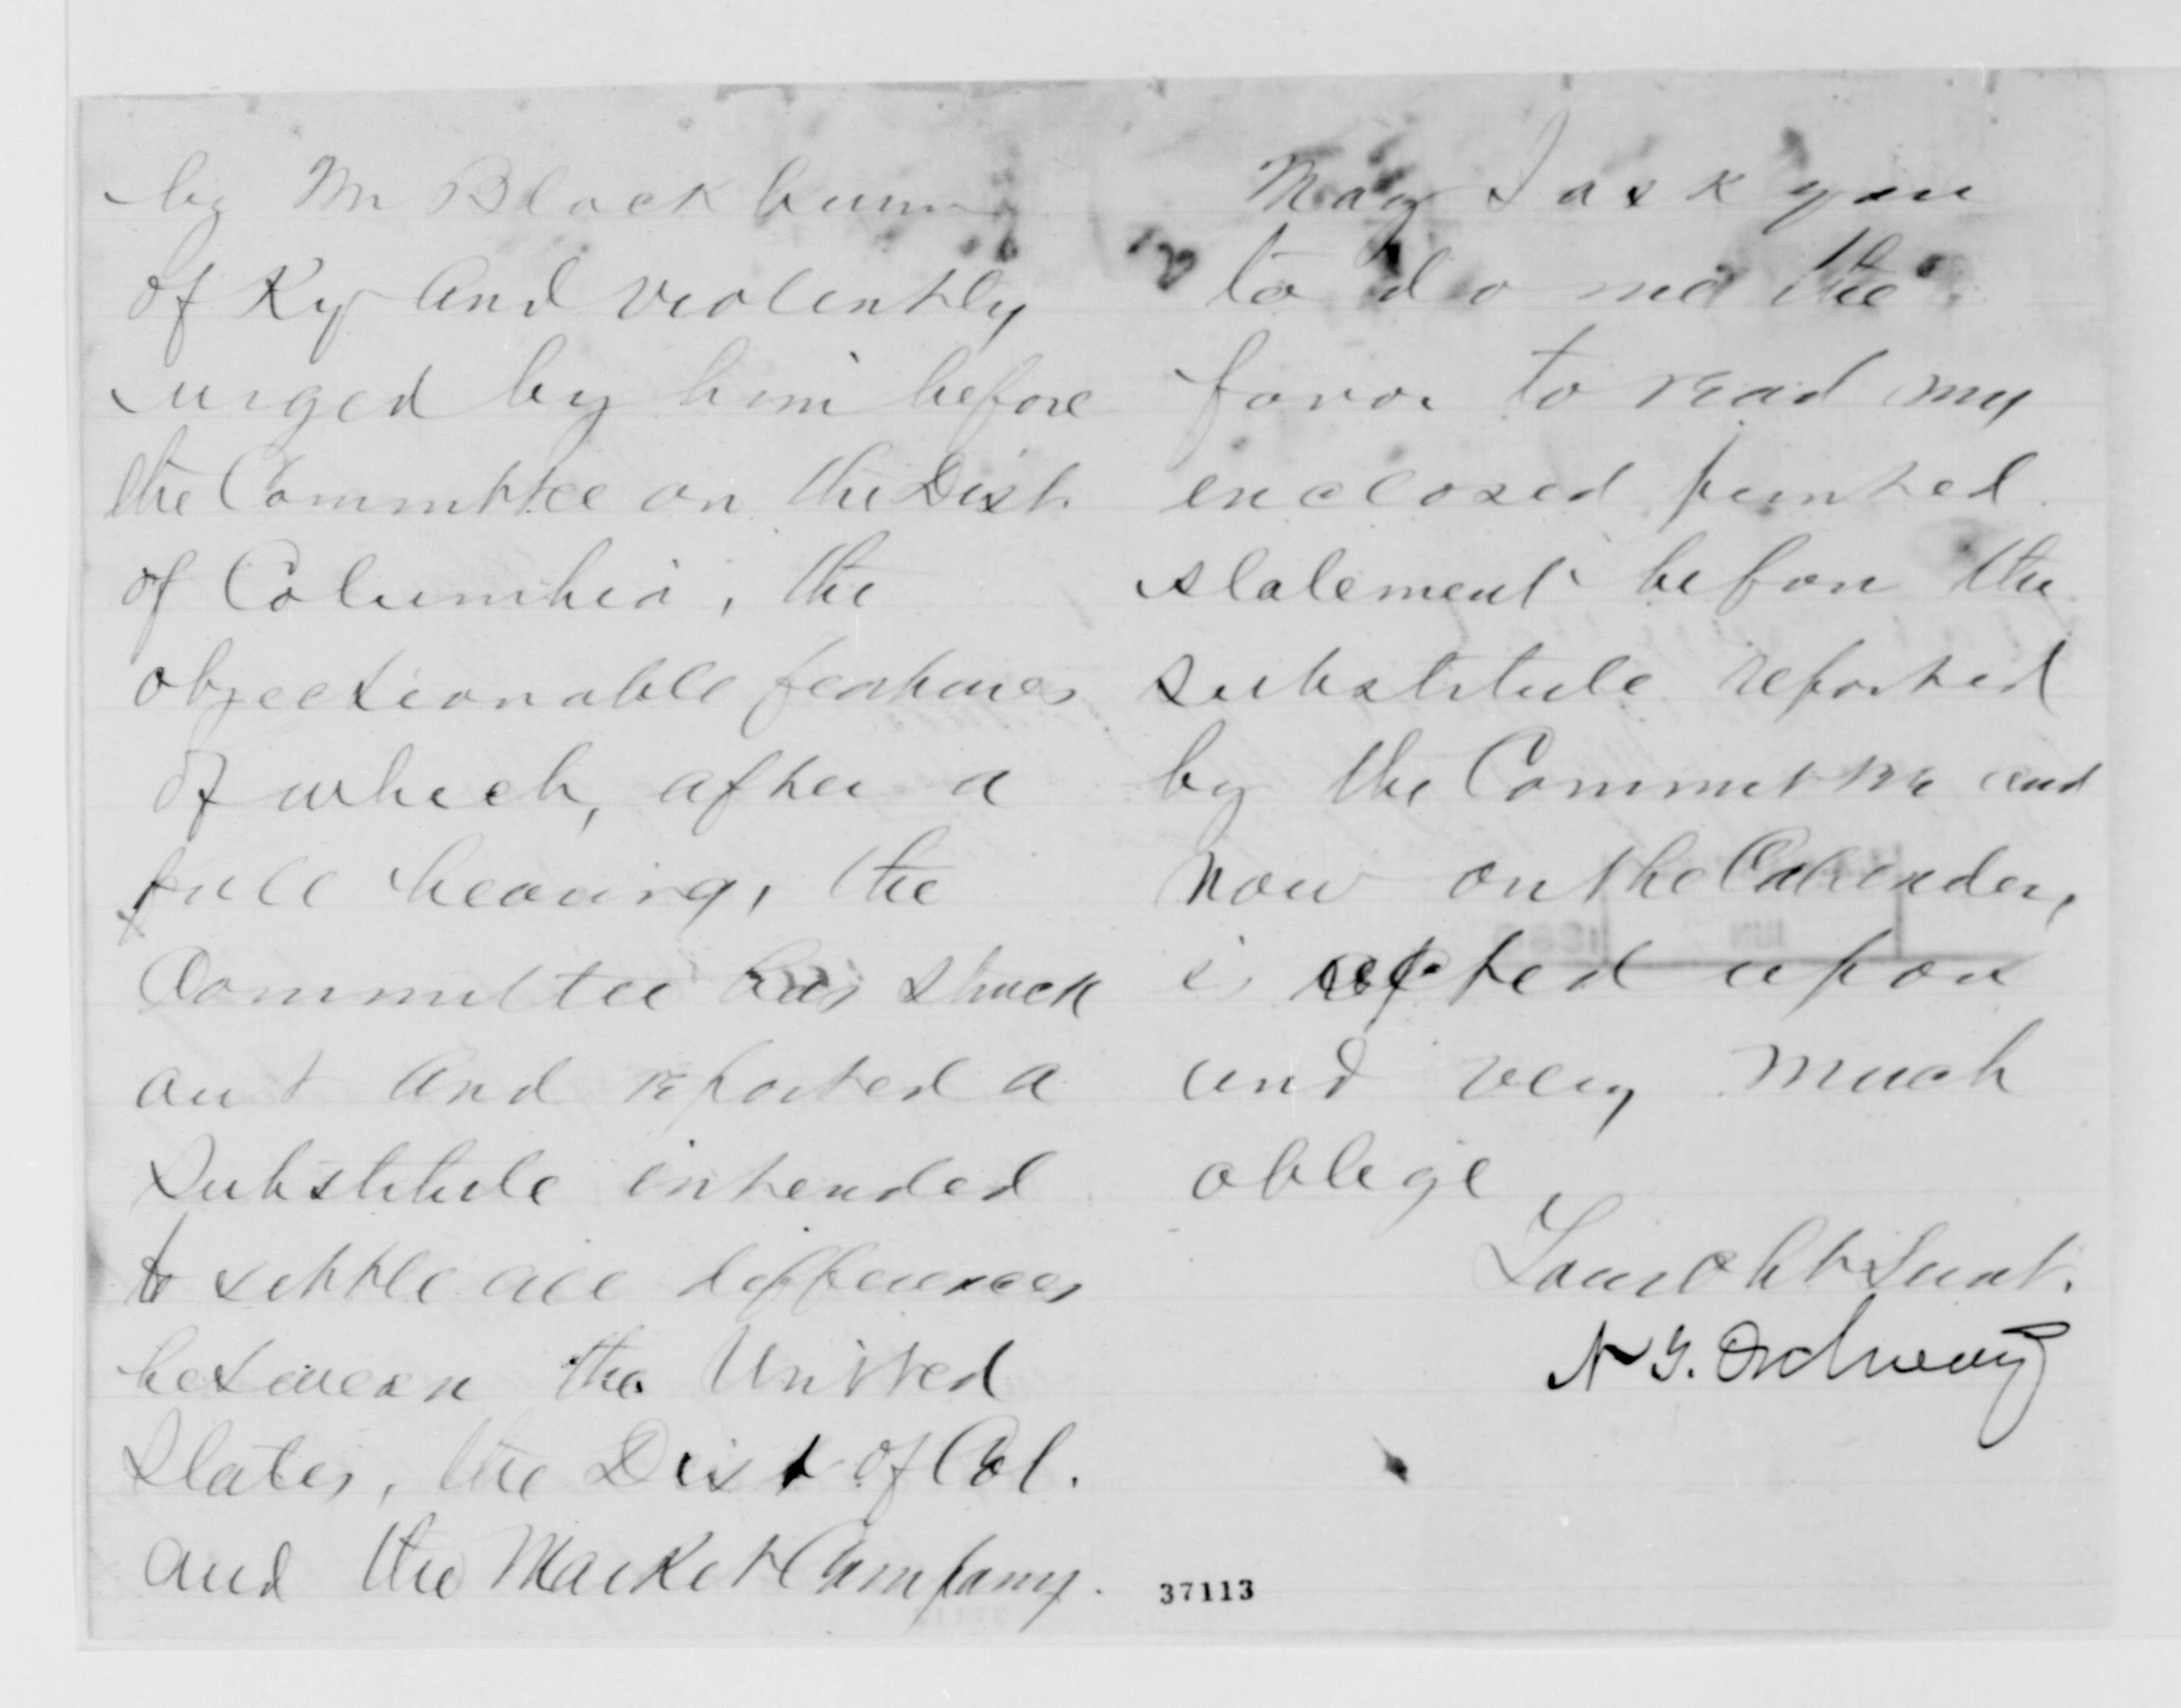 by Mr Blackburn
of Ky and violently
urged by him before
the Committee on the Dist.
of Columbia, the
objectionable features
of which, after a
full hearing, the
Committee has struck
out and reported a
Substitute intended
to settle all differences
between the United
States, the Dist of Col.
and the Market Company.
May I ask you
to do me the
favor to read my
enclosed printed
statement before the
substitute reported
by the Committee and
now on the Calender,
is acted upon
and very much
oblige
Your obt Servt.
N G. Ordway
37113